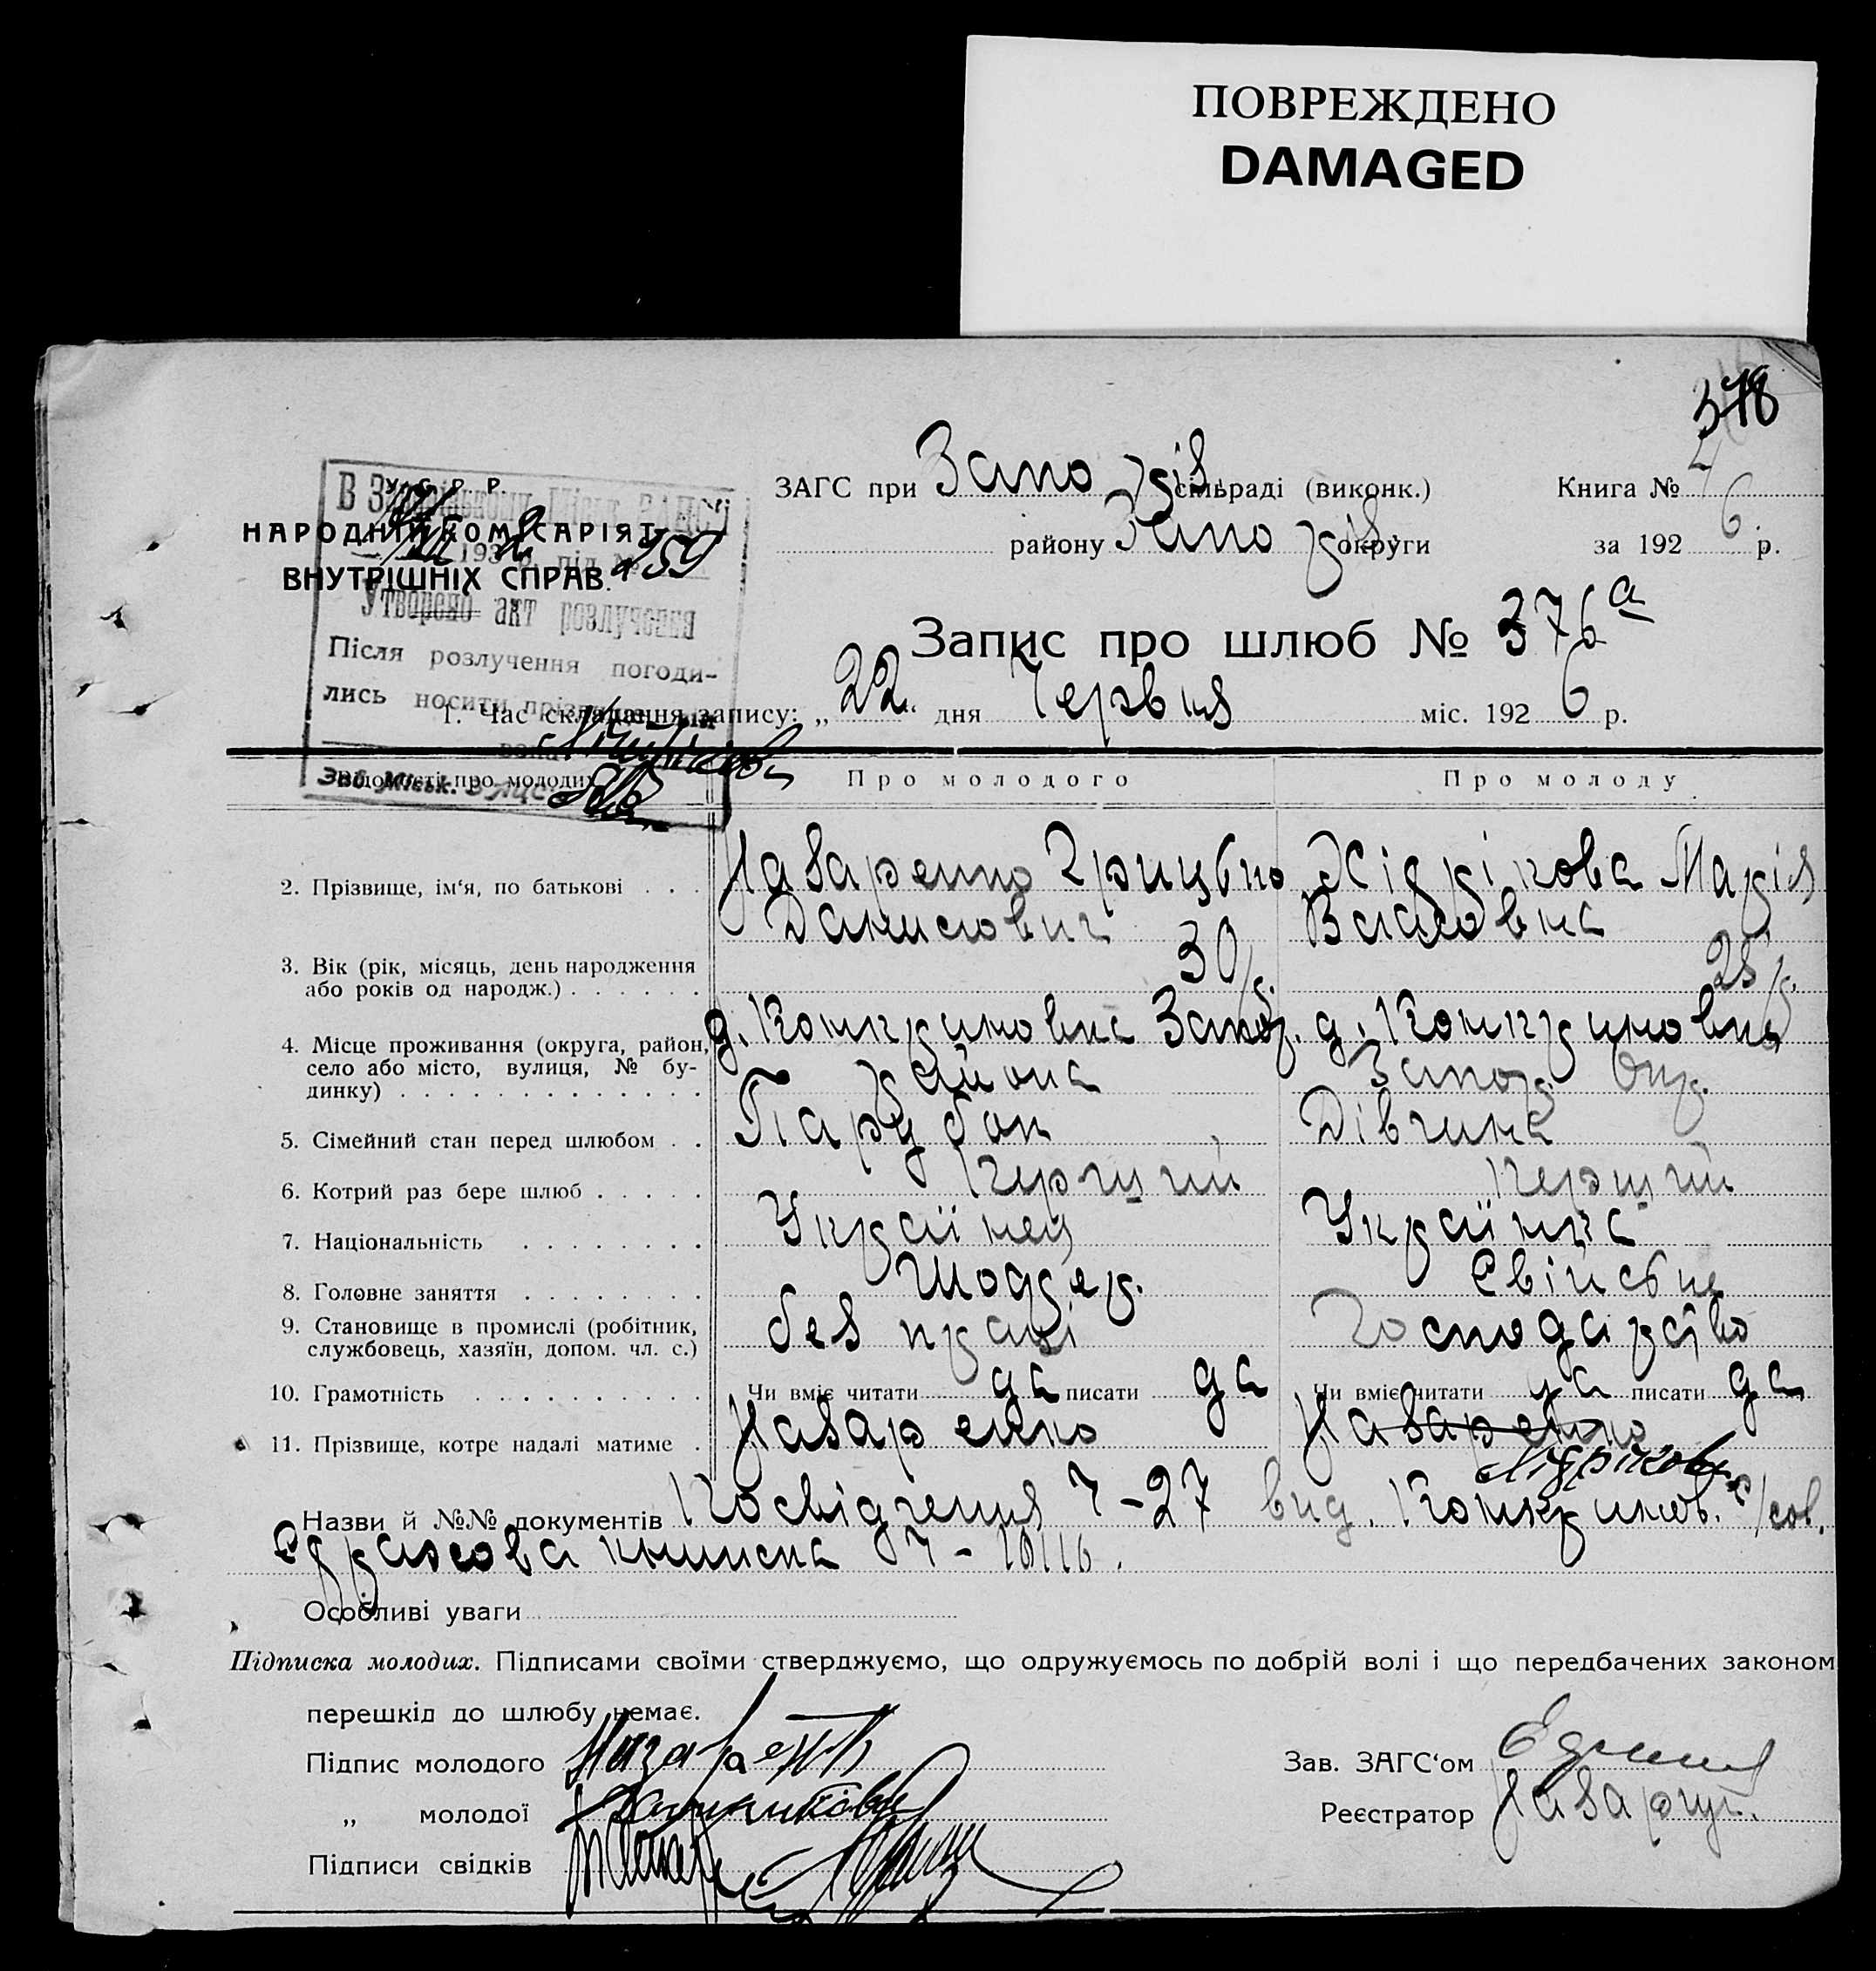 ПОВРЕЖДЕНО
DAMAGED
378
У. С. Р. Р.
НАРОДНІЙ КОМІСАРІЯТ
ВНУТРІШНІХ СПРАВ.
193 р. під № 259
Утворено акт розлучення
Після розлучення погоди-
лись носити прізвища: він
вона
Зав. Міськ. ЗАГС
ЗАГС при Запоріз. сільраді (виконк.) Книга № 4
району Запоріз. округи за 1926 р.
Запис про шлюб № 376а
1. Час складання запису: „22“ дня Червня міс. 1926 р.
Відомості про молодих Про молодого Про молоду
2. Прізвище, ім‘я, по батькові . . . Назаренко Грицько Марія
Данилович Власовна
3. Вік (рік, місяць, день народження 30 р. 25 р.
або років од народж.) . . . . . .
4. Місце проживання (округа, район, Запор.
село або місто, вулиця, № бу- района Запор. Окр.
динку) . . . . . . . . . . . . .
5. Сімейний стан перед шлюбом . . Парубок Дівчина
6. Котрий раз бере шлюб . . . . . Перший Перший
7. Національність . . . . . . . . Українец Українка
8. Головне заняття . . . . . . . . Свійське
9. Становище в промислі (робітник, без праці Господарство
службовець, хазяїн, допом. чл. с.)
10. Грамотність . . . . . . . . . . Чи вміє читати да писати да Чи вміє читати да писати да
11. Прізвище, котре надалі матиме . Назаренко Назаренко
Назви й №№ документів Посвідчення Ч-27 вид. с/сов.
книжка Ч-
Особливі уваги
Підписка молодих. Підписами своїми стверджуємо, що одружуємось по добрій волі і що передбачених законом
перешкід до шлюбу немає.
Підпис молодого Назаренко
„ молодої
Підписи свідків
Зав. ЗАГС‘ом
Реєстратор